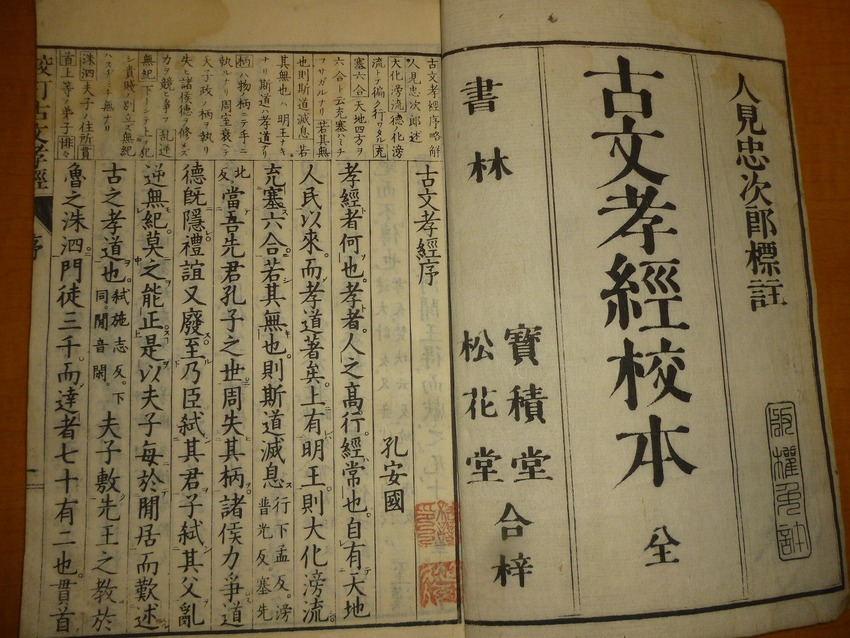 人見忠次郎標註
古文孝經校本
全
書林
寶積堂
松花堂
合梓
版權免許
古文孝經序略解
人見忠次郎述
大化滂流德化滂
流トテ徧ク行ワタル充
塞六合天地四方ヲ
六合ト云充塞ハミチ
フサガルナリ若其無
也則斯道滅息若
其無也ハ明王ナキ
ナリ斯道ハ孝道ナリ
柄ハ物ノ柄ニテ手ニ
執ルナリ周室衰ヘテ
天子政ノ柄ヲ執リ
失ヒ諸侯德ヲ修メズ
力ヲ競ヒ爭フ亂逆
無紀下トシテ上ヲ犯
シ貴賤ノ別立ズ無紀
ハスヂミチ無ナリ
洙泗夫子ノ住所貫
首上等ノ弟子
古文孝經序
孔安國
孝經者何也孝者人之高行經常也自有天地
人民以來而孝道著矣上有明王則大化滂流
充塞六合若其無也則斯道滅息行下孟反滂普光反塞先
北反當吾先君孔子之世周失其柄諸侯力爭道
德既隱禮誼又廢至乃臣弒其君子弒其父亂
逆無紀莫之能正是以夫子每於閒居而歎述
古之孝道也弒施志反下同閒音閑夫子敷先王之教於
魯之洙泗門徒三千而達者七十有二也貫首
校訂古文孝經
序